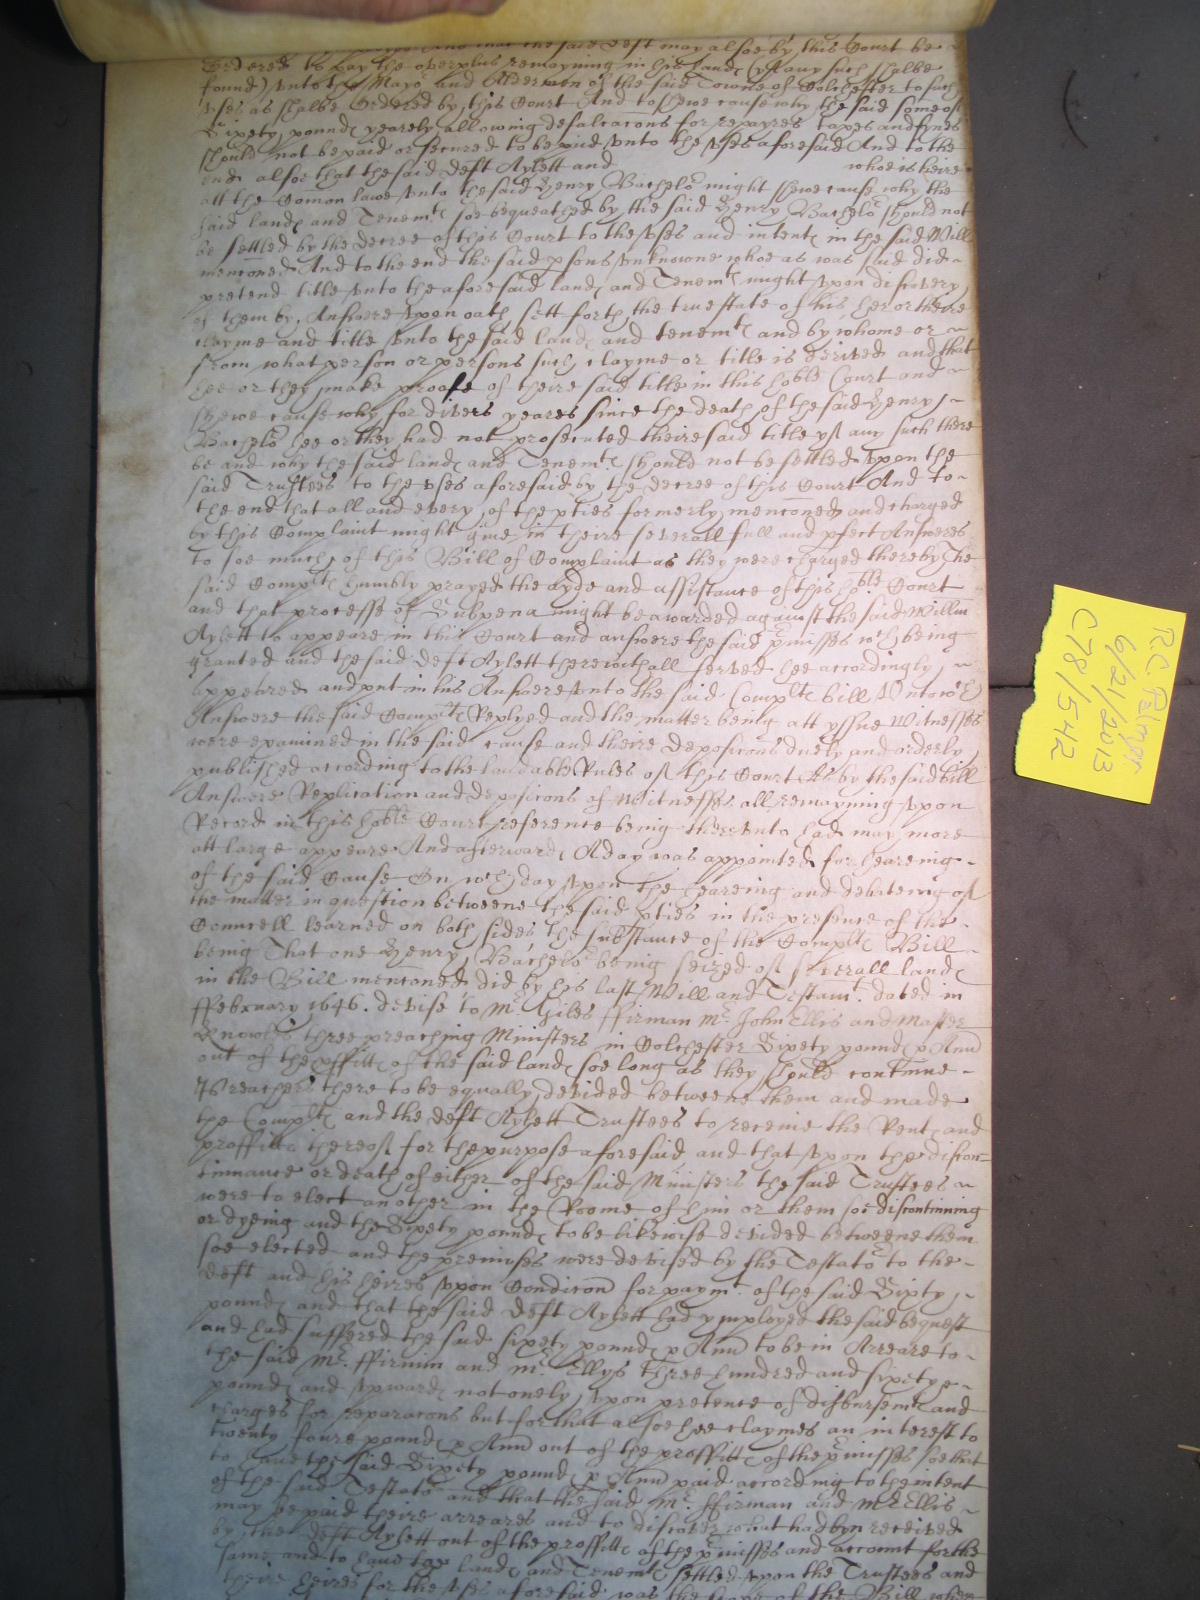 And that the said Deft may alsoe by this Court be
Ordered to pay the overplus remayning in his hand (yf any such shalbe
found) vnto the Mayor and Aldermen of the said Towne of Colchester to such
vses as shalbe Ordered by this Court And to shewe cause why the said some of
Sixety pound yearely allowing defalcacons for repayres taxes and fynes
should not be paid or secured to be paid vnto the vses aforesaid And to the
end alsoe that the said Deft Aylett and whoe is heire
att the Comon lawe vnto the said Henry Bachelor might shewe cause why the
said land and Tenemt soe bequeathed by the said Henry Bachelor should not
be settled by the decree of this Court to the vses and intent in the said Will
menconed And to the end the said psons vnknowne whoe as was said did
pretend title vnto the aforesaid land and Tenemt might vpon discovery
of them by Answere vpon oath sett forth the true state of his her or theire
clayme and title vnto the said land and tenemt and by whome or
from what person or persons such clayme or title is derived and that
hee or they make proofe of theire said title in this hoble Court and
shewe cause why for divers yeares since the death of the said Henry
Bachelor hee or they had not prosecuted theire said title yf any such there
be and why the said land and Tenemt should not be settled vpon the
said Trustees to the vses aforesaid by the decree of this Court And to
the end that all and every of the pties formerly menconed and charged
by this Complaint might give in theire severall full and pfect Answeres
to soe much of this Bill of Complaint as they were charged thereby The
said Complt humbly prayed the ayde and assistance of this hoble Court
and that processe of Subpena might be awarded against the said Willm
Aylett to appeare in this Court and answere the said pmisses wch being
granted and the said Deft Aylett therewithall served hee accordingly
Appeared and put in his Answere vnto the said Complt bill Vnto wch
Answere the said Complt Replyed and the matter being att yssue Witnesses
were examined in the said cause and theire Deposicons duely and orderly
published according to the laudable Rules of this Court As by the said bill
Answere Replication and deposicons of Witnesses all remayning vpon
Record in this hoble Court reference being therevnto had may more
att large appeare And afterward A day was appointed for heareing
of the said Cause On wch day vpon the heareing and debateing of
the matter in question betweene the said pties in the presence of the
Councell learned on both sides the substance of the Complt Bill
being That one Henry Bachelor being seized of severall land
in the Bill menconed did by his last Will and Testamt dated in
ffebruary 1646. devise to Mr Giles ffirman Mr John Ellis and Master
Knowles three preaching Ministers in Colchester Sixety pound p Ann
out of the pffitt of the said land soe long as they should continue
Preachers there to be equally devided betweene them and made
the Complt and the deft Aylett Trustees to receive the Rent and
proffitts thereof for the purpose aforesaid and that vpon the discon=
tinnance or death of either of the said Ministers the said Trustees
were to elect another in the Roome of him or them soe discontinuing
or dyeing and the Sixety pound to be likewise devided betweene them
soe elected and the premises were devised by the Testator to the
deft and his heires vpon Condicon for paymt of the said Sixty
pound and that the said deft Aylett had ymployed the said bequest
and had suffered the said sixety pound p Ann to be in Arreare to
the said Mr. ffirmin and mr. Ellys Three hundred and sixetye
pound and vpward not onely vpon pretence of disbursemt and
charges for reparacons but for that alsoe hee claymes an interest to
twenty foure pound p Ann out of the proffitt of the pmisses soe that
to have the said Sixety pound p Ann paid according to the intent
of the said Testator and that the said Mr. ffirman and Mr Ellis
may be paid theire arreares and to discover what had byn received
by the deft Aylett out of the proffitt of the pmisses and account for the
same and to have the land and Tenemt settled vpon the Trustees and
theire heires for the vses aforesaid was the scope of the Bill when
R.C. Palmer
6/21/2013
C78/542